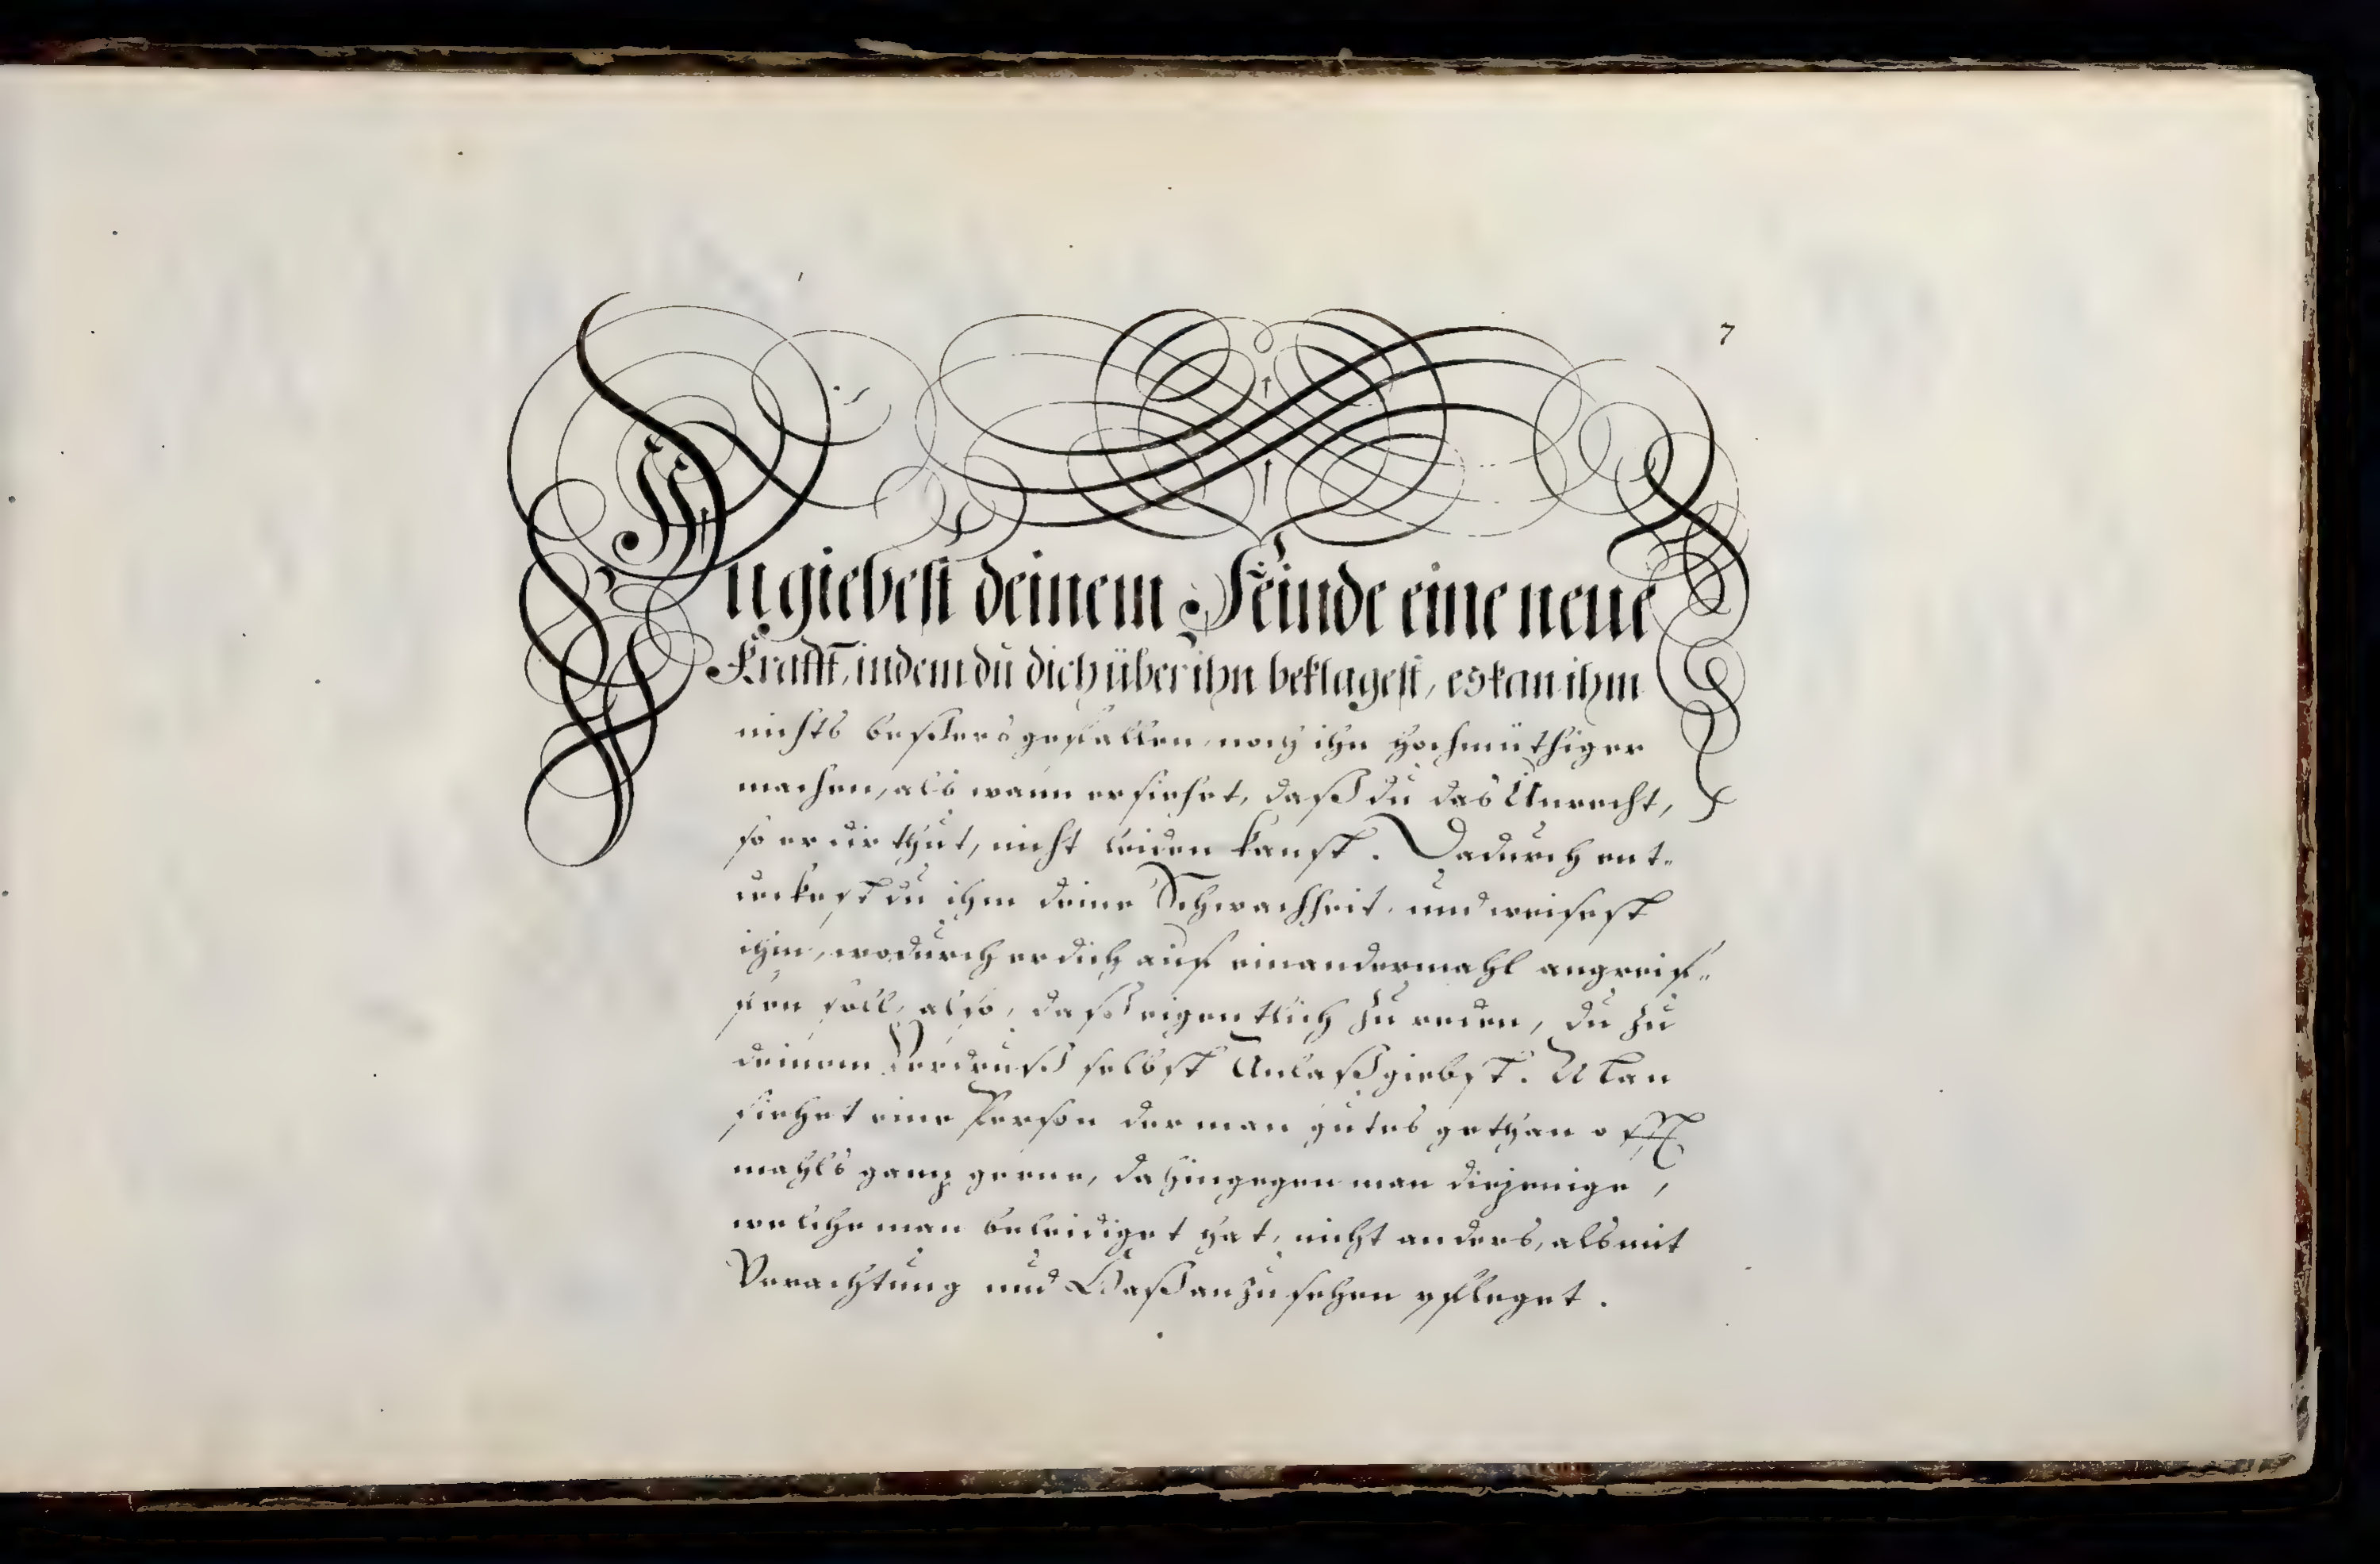 7
Du giebest deinem Feinde eine neue
Krafft, indem du dich über ihn beklagest, es kan ihm
nichts bessers gefallen, noch ihn hochmüthiger
machen, als wann er siehet, daß du das Unrecht,
so er dir thut, nicht leiden kanst. Dadurch ent-
deckest du ihm deine Schwachheit, und weisest
ihm, wodurch er dich auf einandermahl angreif-
fen soll, also, daß eigentlich zu reden, du zu
deinem Verdruß selbst Anlaß giebst. Man
siehet eine Person der man gutes gethan offt
mahls gantz gerne, da hingegen man diejenige,
welche man beleidiget hat, nicht anders, als mit
Verachtung und Haß anzusehen pfleget.